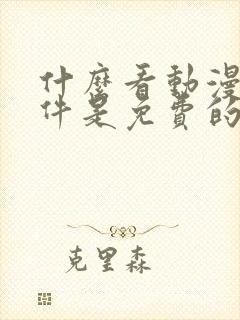 什麼看動漫
件是免費的
克里森